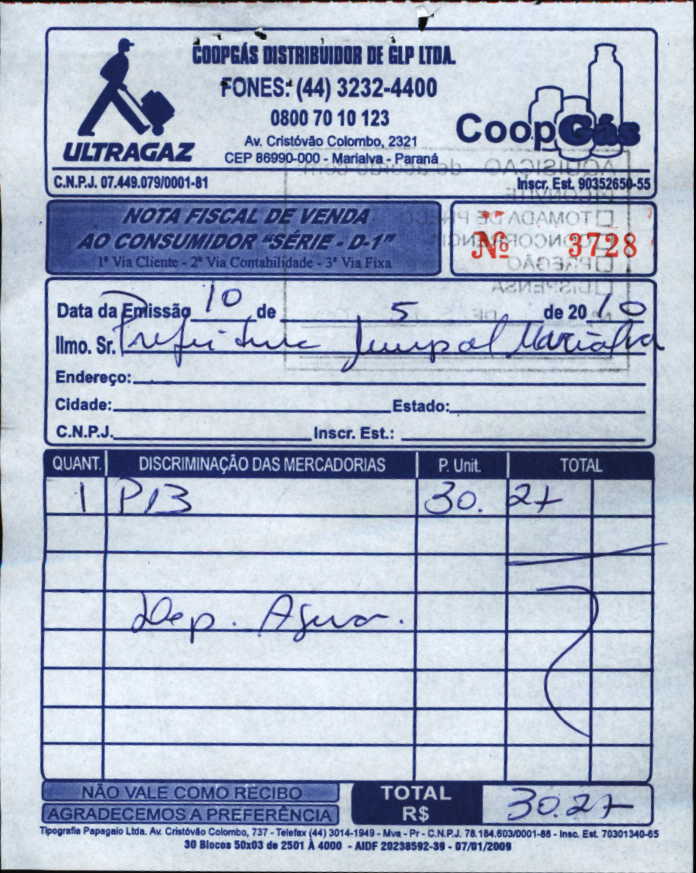 COOPGÁS DISTRIBUIDOR DE GLP LTDA.
FONES: (44) 3232-4400
0800 70 10 123
Av. Cristóvão Colombo, 2321
CEP 86990-000 - Marialva - Paraná
ULTRAGAZ
CoopGás
C.N.P.J. 07.449.079/0001-81
Inscr. Est. 90352650-55
NOTA FISCAL DE VENDA
AO CONSUMIDOR "SÉRIE - D-1"
1ª Via Cliente - 2ª Via Contabilidade - 3ª Via Fixa
Nº 3728
AQUISIÇÃO de acordo com
CONVITE
TOMADA DE PREÇO
CONCORRÊNCIA
PREGÃO
DISPENSA
Data da Emissão 10 de 5 de 2010
Ilmo. Sr. Prefeitura Marialva
Endereço:
Cidade: Estado:
C.N.P.J. Inscr. Est.:
QUANT. DISCRIMINAÇÃO DAS MERCADORIAS P. Unit. TOTAL
1 P13 30. 27
Dep. Agua.
NÃO VALE COMO RECIBO
AGRADECEMOS A PREFERÊNCIA
TOTAL R$ 30.27
Tipografia Papagaio Ltda. Av. Cristóvão Colombo, 737 - Telefax (44) 3014-1949 - Mva - Pr - C.N.P.J. 78.184.603/0001-88 - Insc. Est. 70301340-65
30 Blocos 50x03 de 2501 À 4000 - AIDF 20238592-39 - 07/01/2009